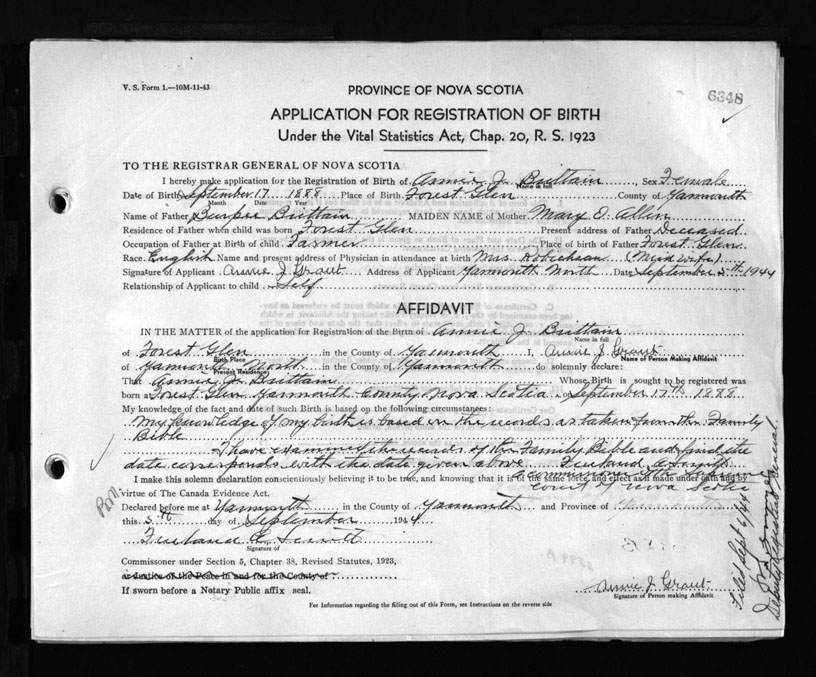 V. S. Form 1.—10M-11-43
6348
PROVINCE OF NOVA SCOTIA
APPLICATION FOR REGISTRATION OF BIRTH
Under the Vital Statistics Act, Chap. 20, R. S. 1923
TO THE REGISTRAR GENERAL OF NOVA SCOTIA
I hereby make application for the Registration of Birth of Annie J. Brittain, Sex Female
Name in full
Date of Birth September 17 1888 Place of Birth Forest Glen County of Yarmouth
Month Date Year
Name of Father Burpee Brittain MAIDEN NAME of Mother Mary O. Allen
Residence of Father when child was born Forest Glen Present address of Father Deceased
Occupation of Father at Birth of child Farmer Place of birth of Father Forest Glen
Race English Name and present address of Physician in attendance at birth Mrs. Robicheau (Mid Wife)
Signature of Applicant Annie J. Grant Address of Applicant Yarmouth North Date September 5th 1944
Relationship of Applicant to child Self
AFFIDAVIT
IN THE MATTER of the application for Registration of the Birth of Annie J. Brittain
Name in full
of Forest Glen in the County of Yarmouth I, Annie J. Grant
Birth Place Name of Person Making Affidavit
of Yarmouth North in the County of Yarmouth do solemnly declare:
Present Residence
That Annie J. Brittain Whose Birth is sought to be registered was
born at Forest Glen Yarmouth County Nova Scotia on September 17th 1888
My knowledge of the fact and date of such Birth is based on the following circumstances:
My knowledge of my birth is based on the records as taken from the Family
Bible
I have examined the records of the Family Bible and find the
date corresponds with the date given above Freeland
a Commissioner of the Supreme
I make this solemn declaration conscientiously believing it to be true, and knowing that it is of the same force and effect as if made under oath and by
Court of Nova Scotia
virtue of The Canada Evidence Act.
Declared before me at Yarmouth in the County of Yarmouth and Province of
this 5th day of September 1944
Freeland
Signature of
Commissioner under Section 5, Chapter 38, Revised Statutes, 1923,
or Justice of the Peace in and for the County of
If sworn before a Notary Public affix seal.
Annie J. Grant
Signature of Person making Affidavit
For Information regarding the filling out of this Form, see Instructions on the reverse side
Filed Sept 6/44
Deputy Registrar General